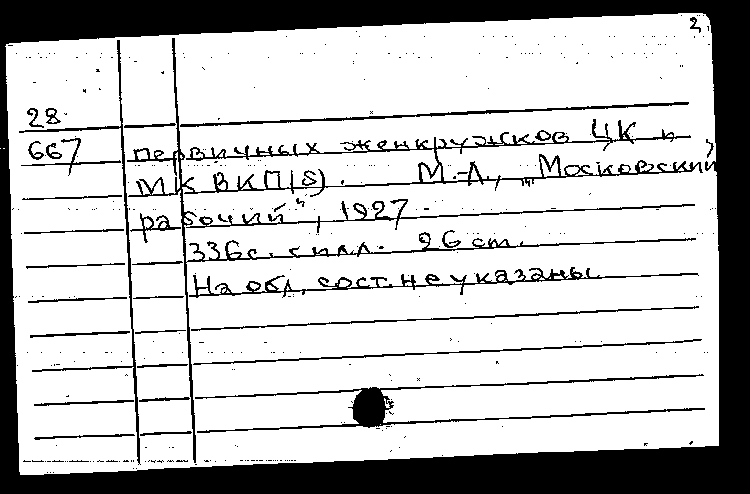 2
28
667 первичных женкружков ЦК и
МК ВКП(б). М.-Л., „Московский
рабочий", 1927.
336с. с илл. 26 cm.
На обл. сост. не указаны.